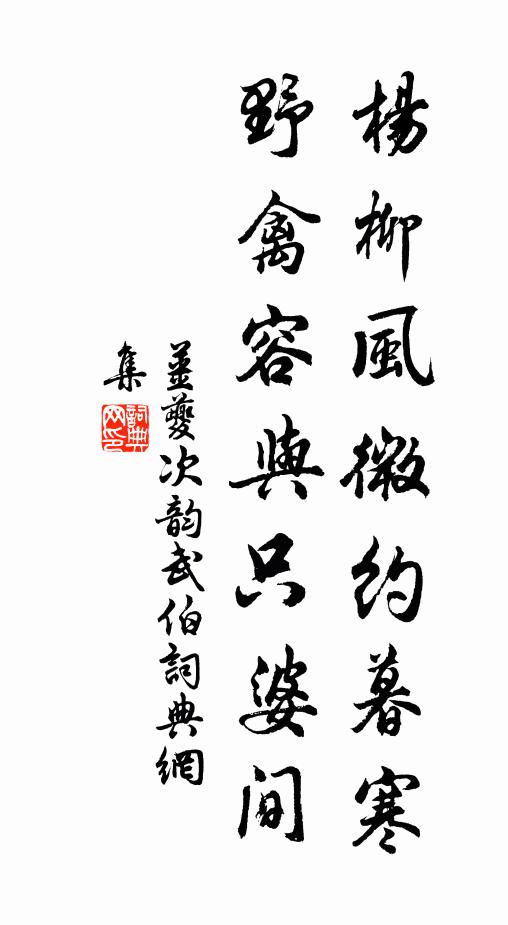 楊柳風微約暮寒
野禽容與只婆間
姜夔次韵武伯詞典網
集
詞典網印